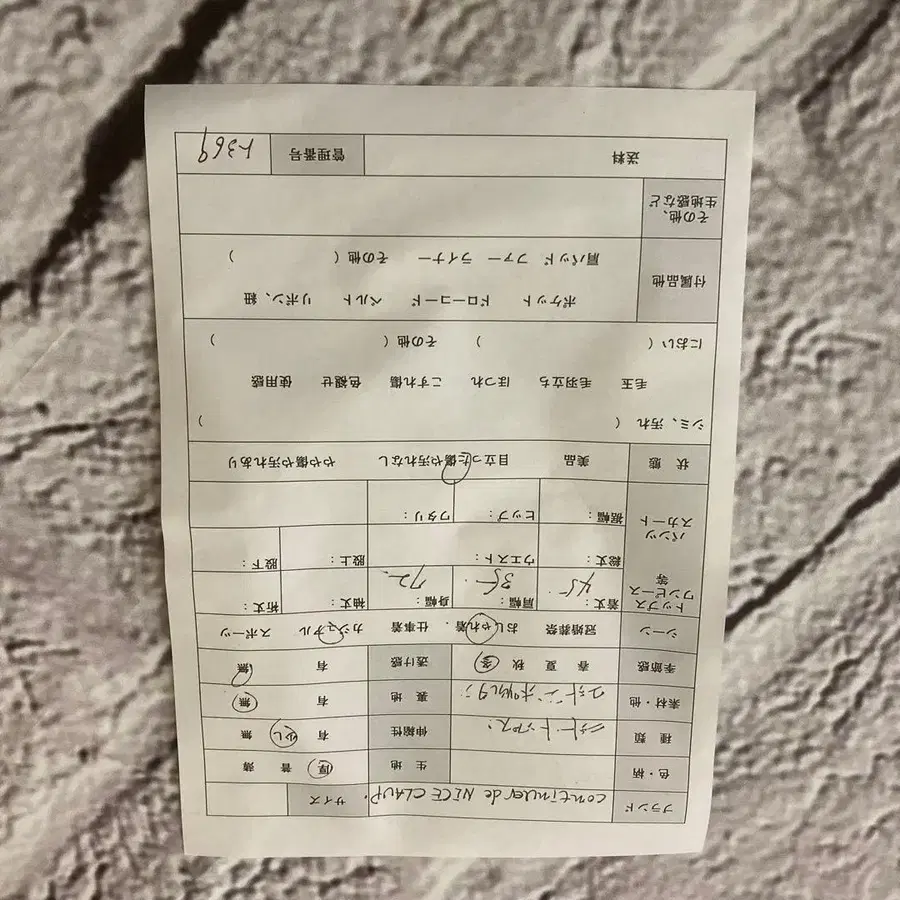 ブランド continuer de NICE CLAUP. サイズ
色・柄 生 地 厚 普 薄
種 類 ニットトップス. 伸縮性 有 少し 無
素材・他 裏 地 有 無
季節感 春 夏 秋 冬 透け感 有 無
シーン 冠婚葬祭 おしゃれ着 仕事着 カジュアル スポーツ
トップス ワンピース 等 着丈： 45 肩幅： 35 身幅： 72 袖丈： 裄丈：
パンツ スカート 総丈： ウエスト 股上： 股下：
裾幅： ヒップ： ワタリ：
状 態 美品 目立った傷や汚れなし やや傷や汚れあり
シミ、汚れ （ ）
毛玉 毛羽立ち ほつれ こすれ傷 色褪せ 使用感
におい（ ） その他（ ）
付属品他 ポケット ドローコード ベルト リボン、紐
肩パッド ファー ライナー その他（ ）
その他、
生地感など
送料 管理番号 ト369